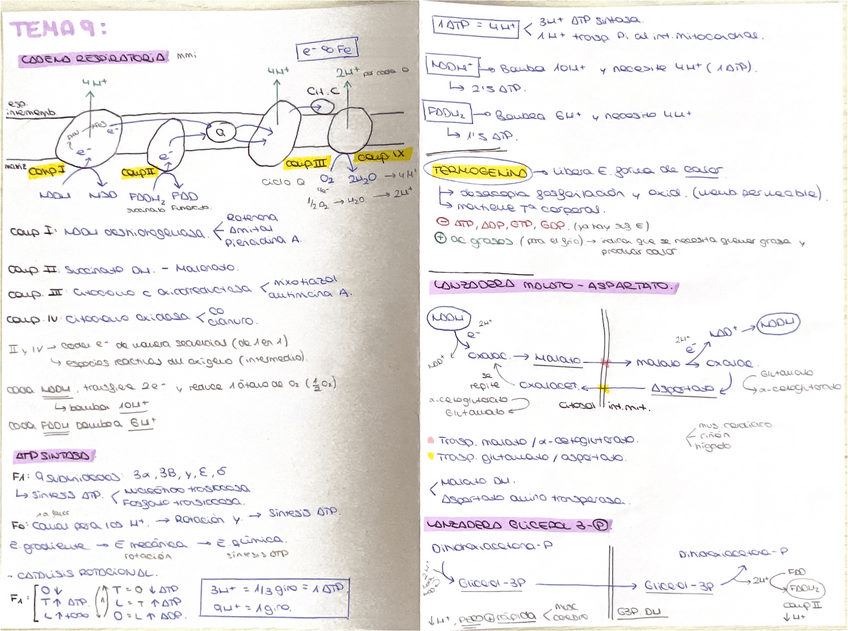 TEMA 9:
CADENA RESPIRATORIA mmi
e- ∞ Fe
4H+
4H+
2H+ por cada O
Cit. C
esp. intermemb
e-
Q
e-
e-
matriz
comp I
comp II
comp III
comp IX
NADH NAD
FADH2 FAD
succinato Fumarato
Ciclo Q
O2 2H2O → 4H+
4e-
1/2 O2 → H2O → 2H+
Comp I: NADH deshidrogenasa.
Rotenona
Amital
Piericidina A.
Comp II: Succinato DH. - Malonato.
Comp. III: Citocromo c oxirreductasa
mixotiazol
antimicina A.
Comp. IV: Citocromo oxidasa
CO
cianuro.
II y IV → ceden e- de manera secuencial (de 1 en 1)
↳ especies reactivas del oxígeno (intermedio).
cada NADH, transfiere 2e- y reduce 1 átomo de O2 (1/2 O2)
↳ bombea 10H+
cada FADH bombea 6H+
ATP SINTASA
F1: 9 subunidades: 3α, 3B, γ, Ɛ, δ
↳ Síntesis ATP.
Nucleótido translocasa
Fosfato translocasa.
F0: Canal para los H+. → Rotación γ → Síntesis ATP.
E gradiente → E mecánica → E química.
rotación síntesis ATP
- CATÁLISIS ROTACIONAL.
F1:
O ↓
T ↑ ATP
L ↑ +ADP
T = O ↓ ATP
L = T ↑ ATP
O = L ↑ ADP.
3H+ = 1/3 giro = 1 ATP
9H+ = 1 giro.
1 ATP = 4H+
3H+ ATP sintasa.
1H+ transp Pi al int. mitocondrial.
NADH → Bombea 10H+ y necesita 4H+ (1 ATP).
↳ 2'5 ATP.
FADH2 → Bombea 6H+ y necesita 4H+
↳ 1'5 ATP.
TERMOGENINA → libera E. forma de calor
↳ desacopla fosforilación y oxid. (memb permeable).
↳ mantiene Tª corporal.
⊖ ATP, ADP, GTP, GDP. (ya hay suf E)
⊕ ac grasos (para el frío) → indica que se necesita quemar grasa y producir calor
LANZADERA MALATO - ASPARTATO.
NADH
2H+
e-
NAD+
Oxalac. → Malato → malato → oxalac.
2H+
e-
NAD+ → NADH
se repite
Oxalacet. ← Aspartato
Glutamato
α-cetoglutarato
α-cetoglutarato
Glutamato
citosol int. mit.
Transp. malato / α-cetoglutarato.
Transp. glutamato / aspartato.
mus cardiaco
riñón
hígado
Malato DH.
Aspartato amino transferasa.
LANZADERA GLICEROL 3-P
Dihidroxiacetona-P
Dihidroxiacetona-P
Glicerol-3P → Glicerol-3P
2H+
FAD
FADH2
comp II
↓ H+
↓H+, pero rápida
musc
cerebro
G3P. DH